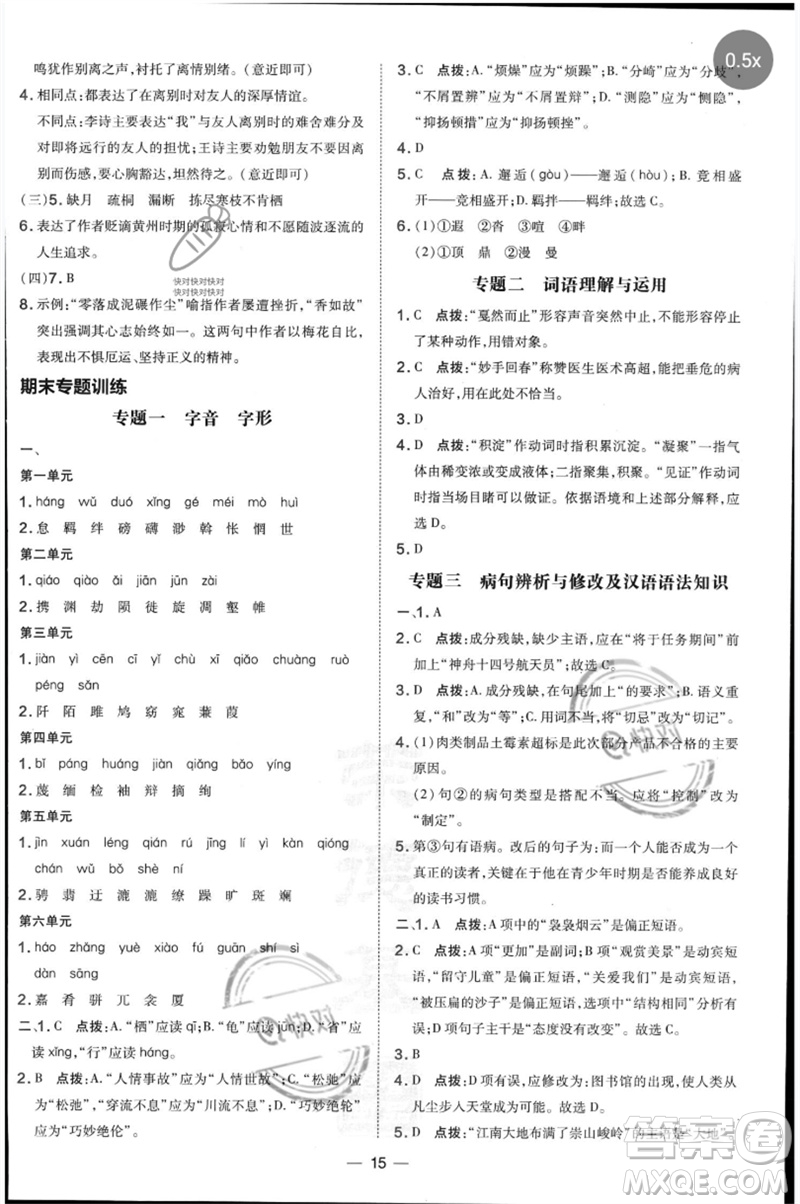 鸣犹作别离之声,衬托了离情别绪。(意近即可)
4. 相同点:都表达了在离别时对友人的深厚情谊。
不同点:李诗主要表达“我”与友人离别时的难舍难分以及对即将远行的友人的牵挂;王诗主要劝勉朋友不要因离别而伤感,要心胸豁达,坦然待之。(意近即可)
(三)5. 缺月 疏桐 漏断 拣尽寒枝不肯栖
6. 表达了作者贬谪黄州时期的孤寂心情和不愿随波逐流的
人生追求。
(四)7. B
快对快对快对
快对快对快对
8. 示例:“零落成泥碾作尘”喻指作者屡遭挫折,“香如故”
突出强调其心志始终如一。这两句中作者以梅花自比,
表现出不惧厄运、坚持正义的精神。
期末专题训练
专题一 字音 字形
一、
第一单元
1. háng wǔ duó xīng gé méi mò huì
2. 怠 羁 绊 磅 礴 渺 斡 怅 惘 世
第二单元
1. qiáo qiào ài jiāng jiān jiān
2. 携 渊 劫 陨 徙 旋 凋 壑 帷
第三单元
1. jiàn yì cēn cī yǐ chì guāng cuánzhù ruò
péng sǎn
2. 阡 陌 雎 鸠 窈 窕 蒹 葭
第四单元
1. bǐ páng huáng jiàn bīn zǎi kuì
2. 蔑 缅 检 袖 辩 摘 绚
第五单元
1. jìn xuán léng qián ráng lì kàn qióng
chán wǔ bǒ shè ní
2. 骋 翡 迂 漉 漉 缭 躁 旷 斑 斓
第六单元
1. háo zhǎng yuè xiào fú guān shí sì
dàn sāng
2. 嘉 肴 骈 兀 衾 厦
二、1. C 点拨:A.“栖”应读 qī;B.“龟”应读 jūn;D.“省”应
读 xǐng,“行”应读 háng。
2. B 点拨:A.“人情事故”应为“人情世故”;C.“松驰”应
为“松弛”,“穿流不息”应为“川流不息”;D.“巧妙绝轮”
应为“巧妙绝伦”。
3. C 点拨:A.“烦燥”应为“烦躁”;B.“分崎”应为“分歧”,
“不屑置辨”应为“不屑置辩”;D.“测隐”应为“恻隐”,
“抑扬顿措”应为“抑扬顿挫”。
4. D
5. C 点拨:A. 邂逅(gòu)——邂逅(hòu);B. 竞相盛
开——竞相盛开;D. 羁拌——羁绊。故选 C。
6. (1)①遐 ②沓 ③喧 ④畔
(2)①顶 鼎 ②漫 曼
专题二 词语理解与运用
1. C 点拨:“戛然而止”形容声音突然中止,不能形容停止
了某种动作,用错对象。
2. C 点拨:“妙手回春”称赞医生医术高超,能使垂危的病
人治好,用在此处不恰当。
3. D
4. D 点拨:“积淀”作动词时指积累沉淀。“凝聚”一指气
体由稀变浓或变成液体;二指聚集,积聚。“见证”作动词
时指当场目睹可以作证。依据语境和以上部分解释,应
选 D。
5. D
专题三 病句辨析与修改及汉语语法知识
一、1. A
2. C 点拨:成分残缺,缺少主语,在“将于任务期间”前
加上“神舟十四号航天员”;故选 C。
3. D 点拨:A. 成分残缺,在句尾加上“的要求”;B. 语义
重复,“和”改为“等”;C. 用词不当,将“切忌”改为“切记”。
4. (1)肉类制品土霉素超标是此次部分产品不合格的主要
原因。
(2)句②的病句类型是搭配不当。应将“控制”改为
“制定”。
5. 第③句有语病。改后的句子为:而一个人能否成为一个
真正的读者,关键在于他在青少年时期能否养成良好的
的读书习惯。
二、1. A 点拨:A 项中的“袅袅烟云”是偏正短语。
2. C 点拨:A 项“更加”是副词;B 项“观赏美景”是动宾短
语,“留守儿童”是偏正短语,“关爱生命”是动宾短语,
“被压扁的沙子”是偏正短语,“结构相同”分析有误;
D 项句子主干是“态度没有改变”。故选 C。
3. B
4. C 点拨:C 项有误,应修改为:图书馆的出现,使人类从
凡尘步入天堂成为可能。故选 C。
5. D 点拨:D.“江南大地布满了崇山峻岭”的主语是“大地”,
15
0.5x
快对
快对
答案圈
MXQE.COM